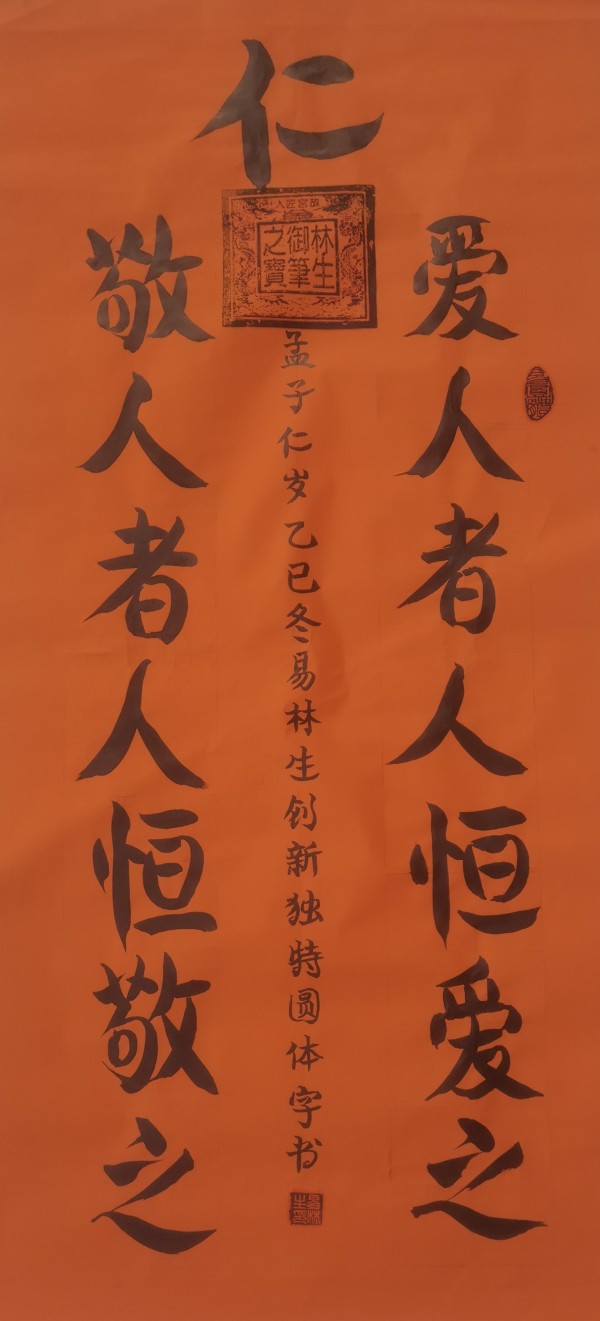 仁
爱人者人恒爱之
敬人者人恒敬之
故宫匠人
林生
御筆
之寶
孟子仁岁乙巳冬易林生创新独特圆体字书
易林
生印